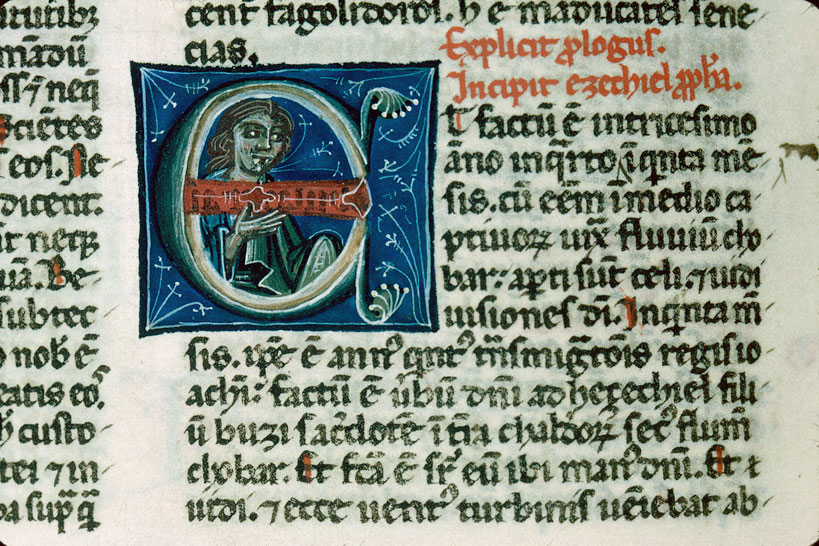 uirtutibꝫ
mādū
ss ⁊ neq̄
sciētes
eos. Ne
dicent.
it neqꝫ
uā. Be
subtec
nob̄ ē
eatis eoꝰ.
custo
tei ⁊ in
sup̄
cent sagolidorol. h̄ ē maducatel sene
cias.
Explicit ꝓlogus.
Incipit ezechiel ꝓph̄a.
E
T factū ē in tricesimo
āno in qͣrto, ī qͥnta mē
sis. cū eēm ī medio ca
ptiuoꝝ iux̄ fluuiū cho
bar: apti sūt celi. ⁊ uidi
uisiones dī. In qͥnta m̄
sis. ip̄e ē annꝰ qͥntꝰ tͣnsmigͣtōis regis io
achī: factū ē ūbū dn̄i ad hezechiel fili
ū buzi sac̄dotē ī t̄ra chaldoꝝ secꝰ flum̄
chobar. Et fc̄a ē sr̄ eū ibi manꝰ dn̄i. Et
uidi. ⁊ ecce uentꝰ turbinis ueīebat ab